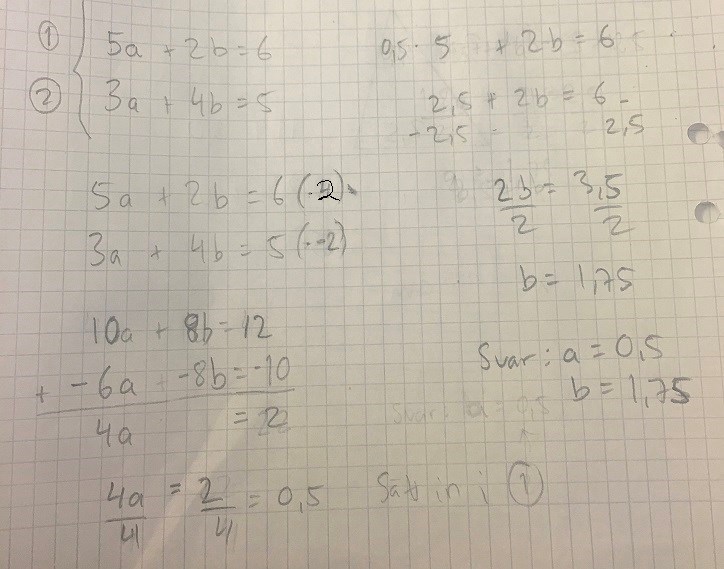 ① 5a + 2b = 6
② 3a + 4b = 5
5a + 2b = 6 (·2)
3a + 4b = 5 (·-2)
10a + 8b = 12
+ -6a -8b = -10
4a = 2
4a/4 = 2/4 = 0,5 Sätt in i ①
0,5 · 5 + 2b = 6
2,5 + 2b = 6 -
-2,5 2,5
2b/2 = 3,5/2
b = 1,75
Svar: a = 0,5
b = 1,75